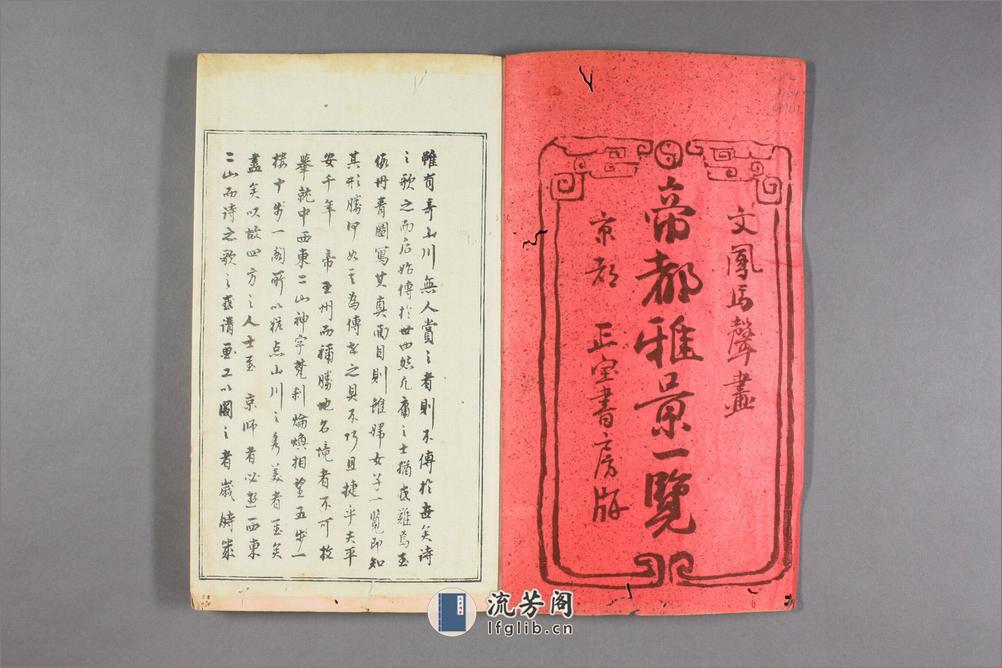 文鳳馬聲畫
帝都雅景一覽
京都 正寶書房版
雖有奇山川無人賞之者則不傳於世矣詩
之歌之而后始傳於世也然凡庸之士猶或難焉至
依丹青圖寫其真面目則雖婦女子一覽即知
其形勝何如之為傳者之具不巧且捷乎夫平
安千年 帝王州而稱勝地名境者不可枚
舉就中西東二山神宇梵刹輪煥相望五步一
樓十步一閣所以粧点山川之秀美者至矣
盡矣以故四方之人士至 京師者必遊西東
二山而詩之歌之或謂畫工以圖之者歲時
流芳阁
lfglib.cn